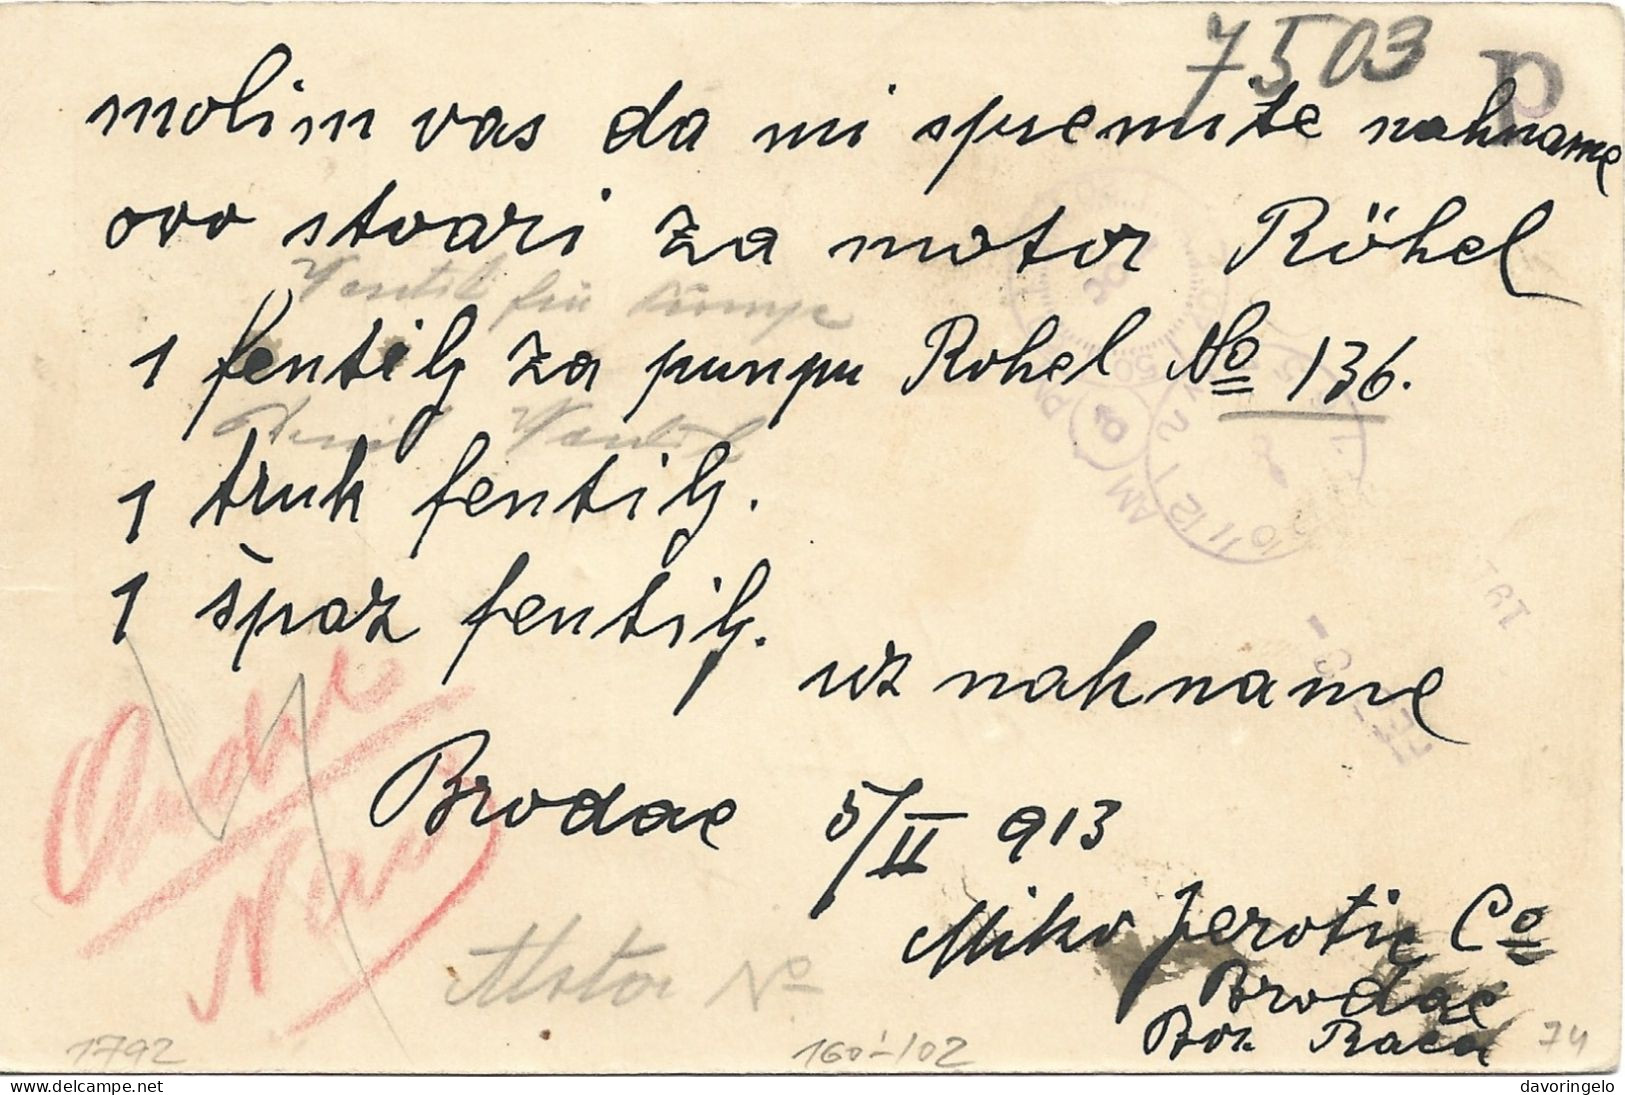 7503 P
molim vas da mi spremite nahname
ovo stvari za motor Röhel
Ventil für Pumpe
1 fentilj za punpu Rohel No 136.
Druck Ventil
1 truk fentilj.
1 špaz fentilj.
uz nahname
Brodac 5/II 913
Miko Jerotic Co
Brodac
Bos. Raca
Motor No
1792
160-/102
74
AM
PM
10 11 12 1 2
davoringelo